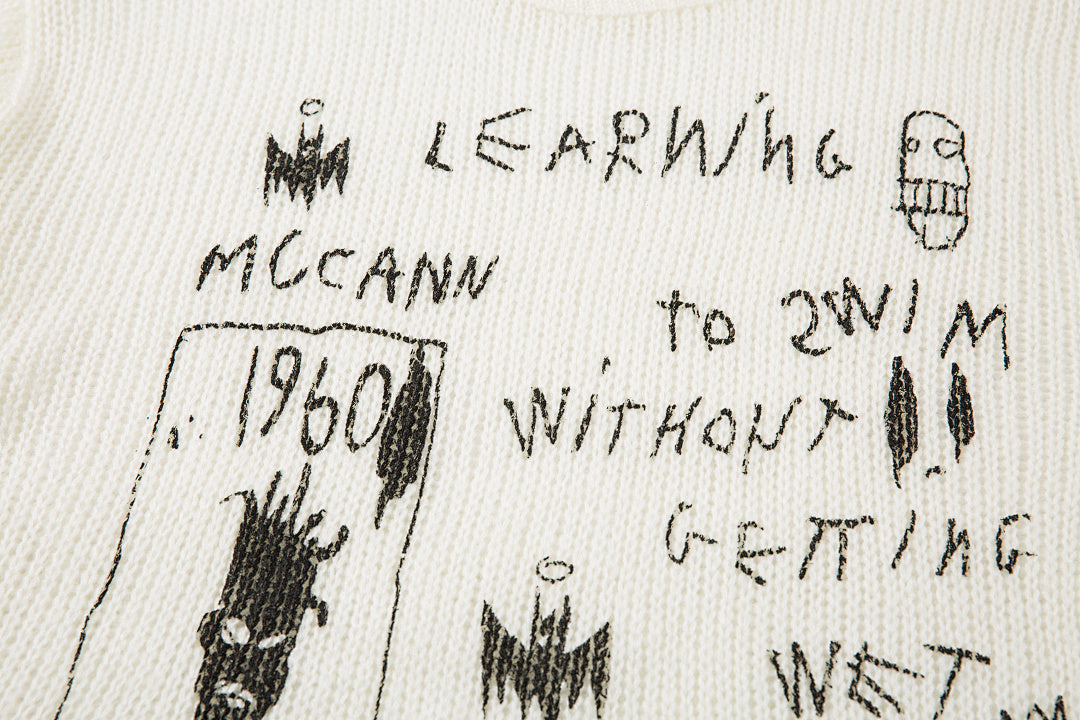 LEARNiNG
MCCANN
to 2WIM
1960
WiTHOUT
GETTING
WET